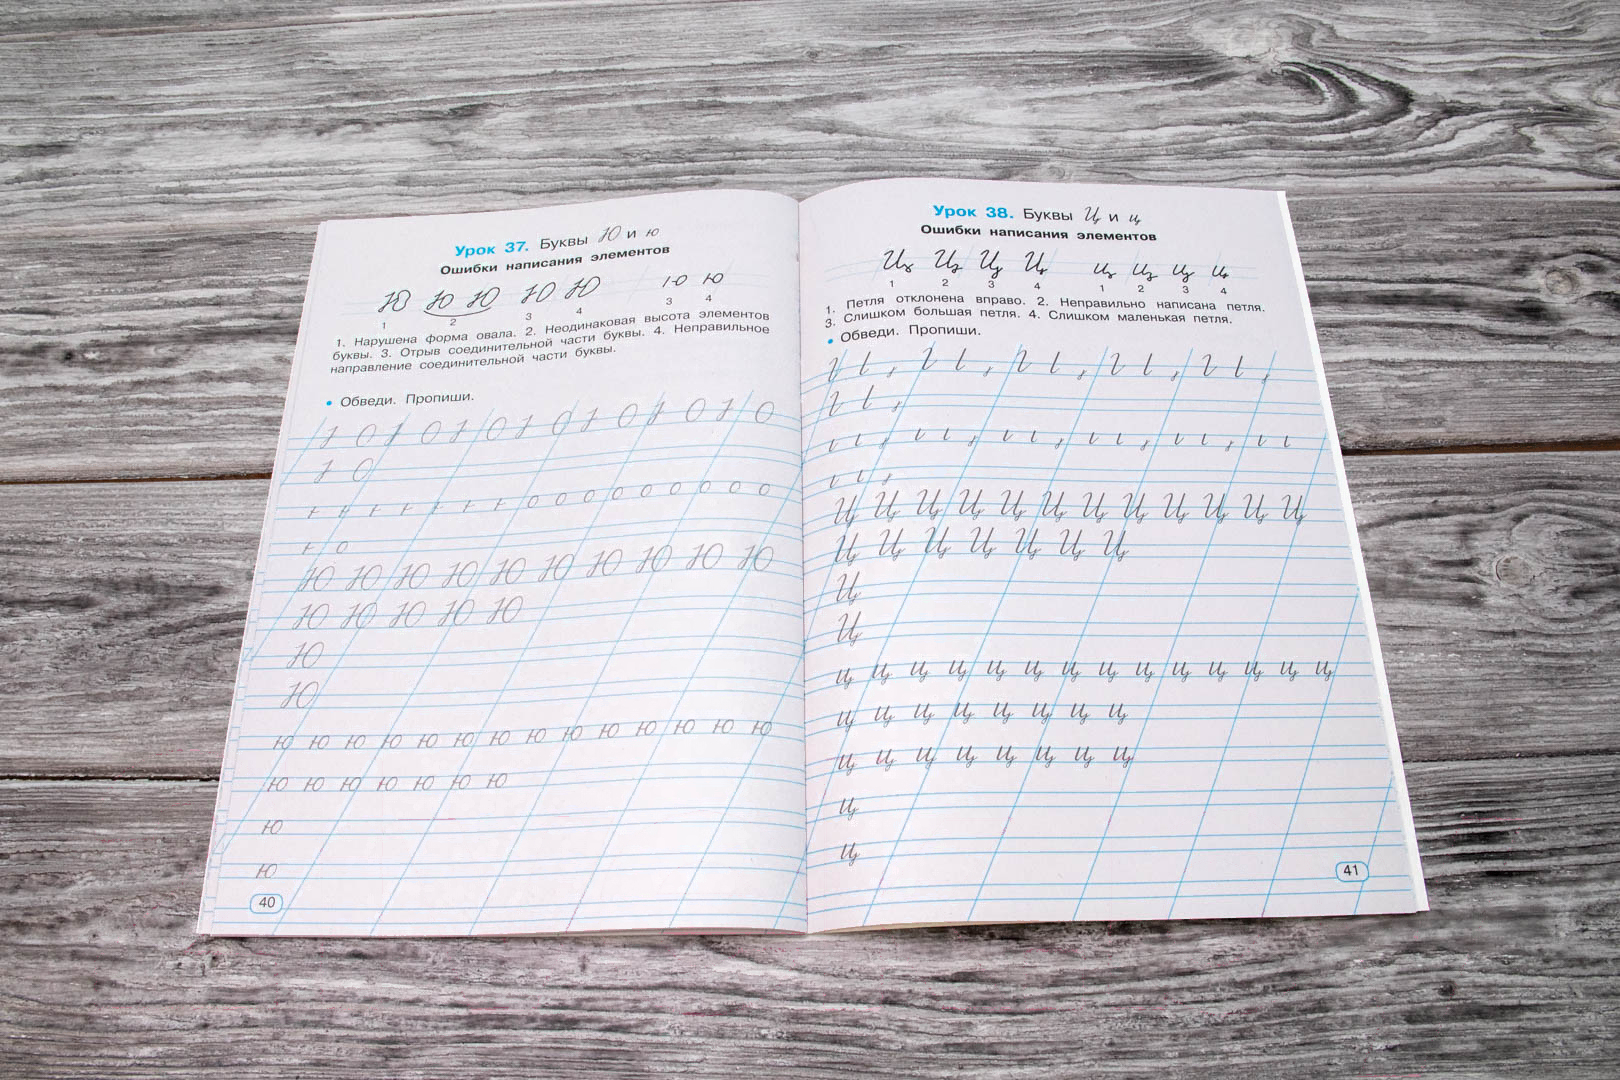 Урок 37. Буквы Ю и ю
Ошибки написания элементов
Ю Ю Ю Ю Ю ю ю
1 2 3 4 3 4
1. Нарушена форма овала. 2. Неодинаковая высота элементов
буквы. 3. Отрыв соединительной части буквы. 4. Неправильное
направление соединительной части буквы.
• Обведи. Пропиши.
Ю Ю Ю Ю Ю Ю Ю Ю Ю Ю
Ю Ю Ю Ю Ю
Ю
Ю
ю ю ю ю ю ю ю ю ю ю ю ю ю ю
ю ю ю ю ю ю ю
ю
ю
40
Урок 38. Буквы Ц и ц
Ошибки написания элементов
Ц Ц Ц Ц ц ц ц ц
1 2 3 4 1 2 3 4
1. Петля отклонена вправо. 2. Неправильно написана петля.
3. Слишком большая петля. 4. Слишком маленькая петля.
• Обведи. Пропиши.
Ц Ц Ц Ц Ц Ц Ц Ц Ц Ц Ц Ц
Ц Ц Ц Ц Ц Ц Ц
Ц
Ц
ц ц ц ц ц ц ц ц ц ц ц ц ц ц
ц ц ц ц ц ц ц ц
ц ц ц ц ц ц ц ц
ц
ц
41